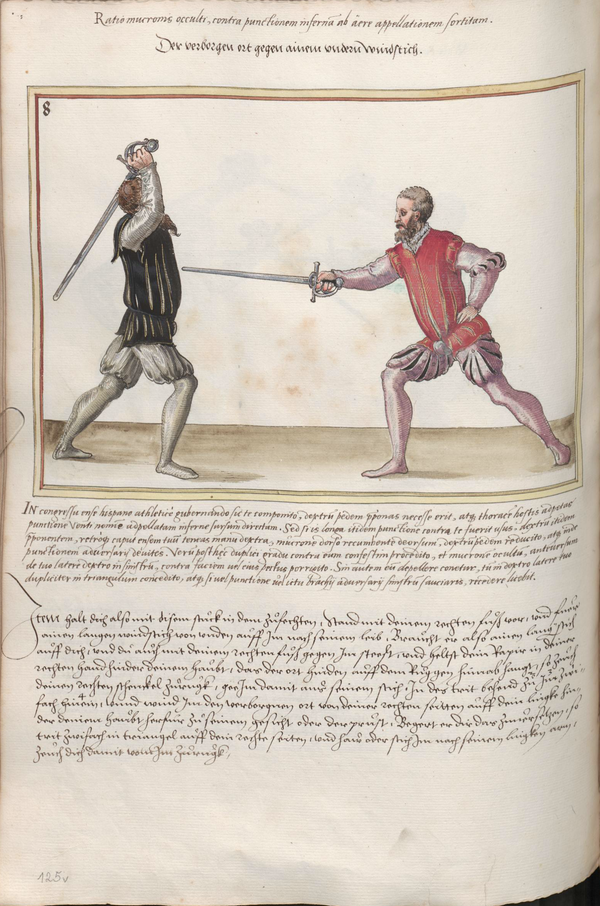 Ratio mucronis occulti, contra punctionem infernã ab aëre appellationem sortitam.
Der verborgen ort gegen ainem undern windstich.
8
IN congressu ense hispano athleticè gubernando sic te componito, dextrũ pedem pponas necesse erit, atq thoracē hostis adpetas
punctione venti nomine adpellatam inferne sursum directam. Sed si is longa itidem punctione contra te fuerit usus, dextrũ itidem
pponentem, retroq caput ensem tuũ teneas manu dextra, mucrone dorso recumbente deorsum, dextrũ pedem reducito, atq inde
punctionem adversarij devites. Verũ posthec duplici gradu contra eum confestim procedito, et mucrone occulto, anteversum
de tuo latere dextro in sinistrũ, contra faciem vel eius pectus porrigito. Sin autem ea depellere conetur, tu in dextro latere tuo
dupliciter in triangulum concedito, atq si vel punctione vel ictu brachij adversarij sinistrũ sauciaris, recedere licebit.
Item halt dich also mit disem stuck in dem zufechten, Stand mit deinem rechten fuß vor, und fuer
ainen langen windstich von unden auff Im nach seinem leib, Braucht er also ainen lang stich
auff dich, und du auch mit deinem rechten fuß gegen Im steest, und heltst dein Rapir in deiner
rechten hand hinder deinem haubt, das der ort hinden auff dem Ruggen hinab hangt, so zeuch
deinen rechten schenckel zuruck, gee Im damit aus seinem stich, In des trit behend zu Im zwi-
fach hinein, unnd wind Im den verborgnen ort von deiner rechten seitten auff dein lincke hin-
der deinem haubt herfur zu seinem gesicht oder der prust, Begert er dir das zuversetzen, so
trit zwifach in triangel auff dein rechte seiten, und haw oder stich Im nach seinem lingken arm,
Zeuch dich damit von Im zuruck.
125v